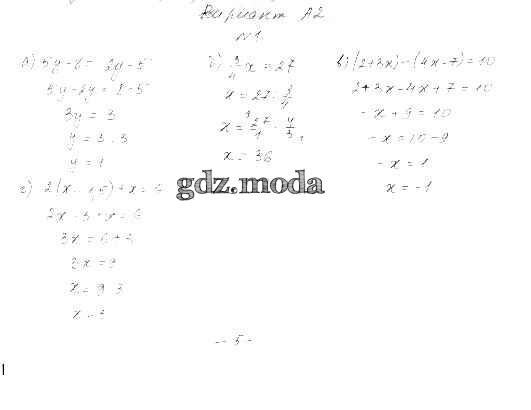 Вариант А2
№1.
а) 5y-8= 2y-5
5y-2y = 8-5
3y = 3
y = 3:3
y = 1
б) 3/4 x = 27
x = 27 : 3/4
x = 27/1 · 4/3
x = 36
в) (2+3x)-(4x-7)=10
2+3x-4x+7=10
-x+9=10
-x=10-9
-x=1
x=-1
г) 2(x-1,5)+x=6
2x-3+x=6
3x=6+3
3x=9
x=9:3
x=3
gdz.moda
- 5 -